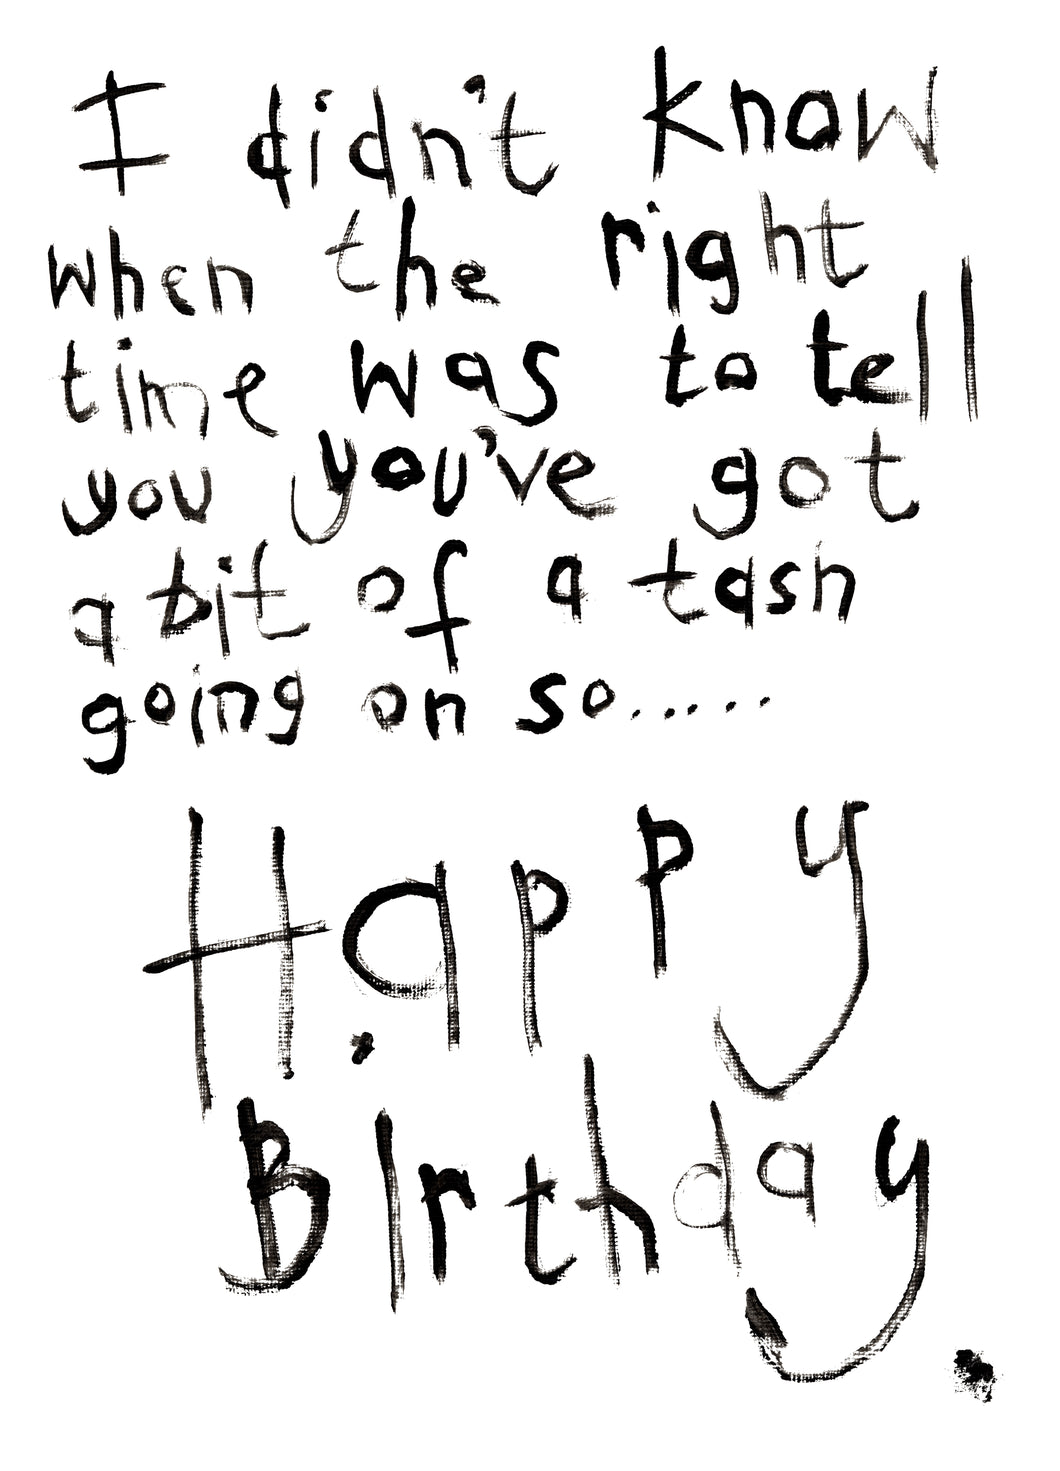 I didn't know
when the right
time was to tell
you you've got
a bit of a tash
going on so.....
Happy
Birthday.